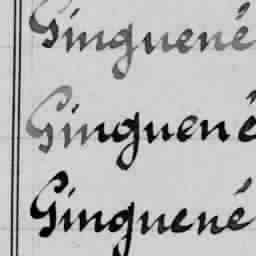 Ginguené
Ginguené
Ginguené